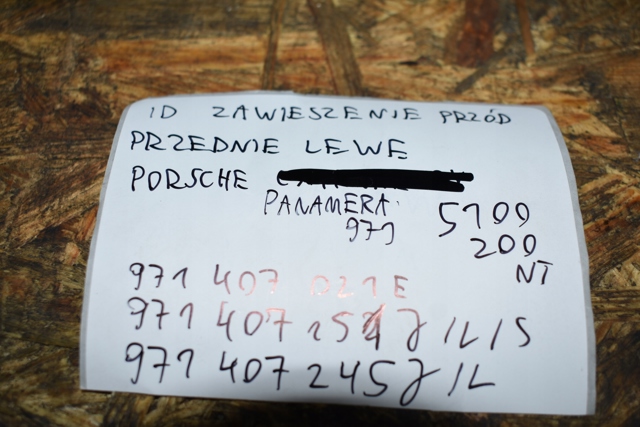 ID ZAWIESZENIE PRZÓD
PRZEDNIE LEWE
PORSCHE
PANAMERA
971
5100
200
NT
971 407 021E
971 407 151 J /L/S
971 407 245 J /L